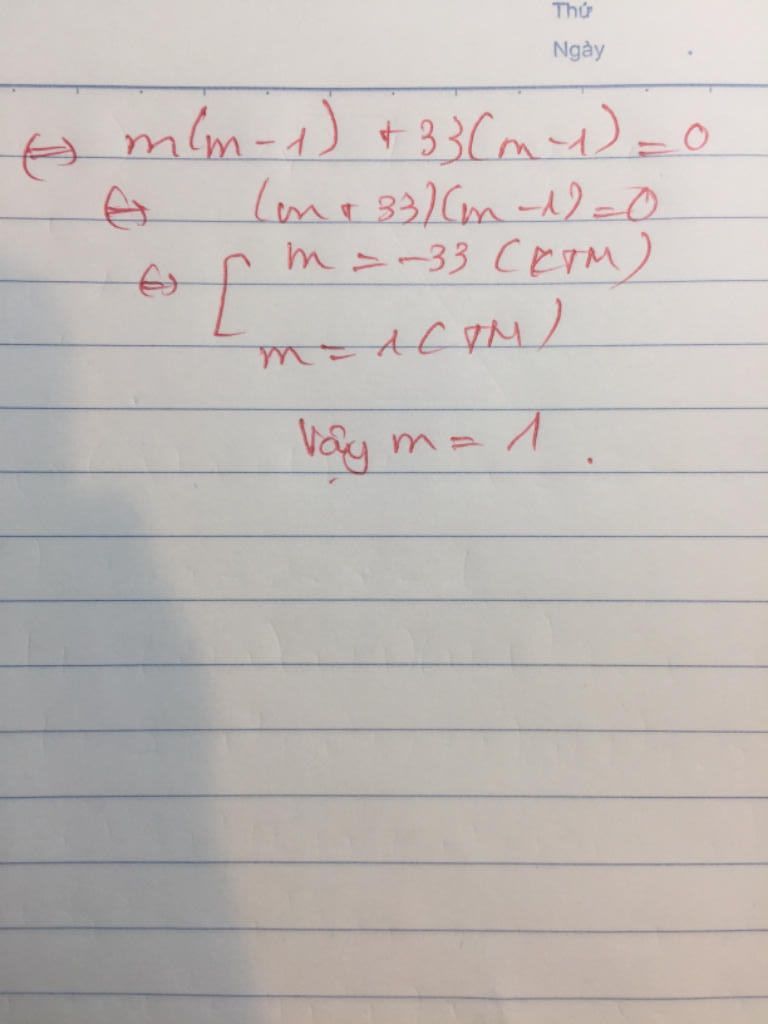 Thứ
Ngày
⇔ m(m-1) + 33(m-1) = 0
⇔ (m+33)(m-1) = 0
⇔ [ m = -33 (KTM)
m = 1 (TM)
Vậy m = 1.